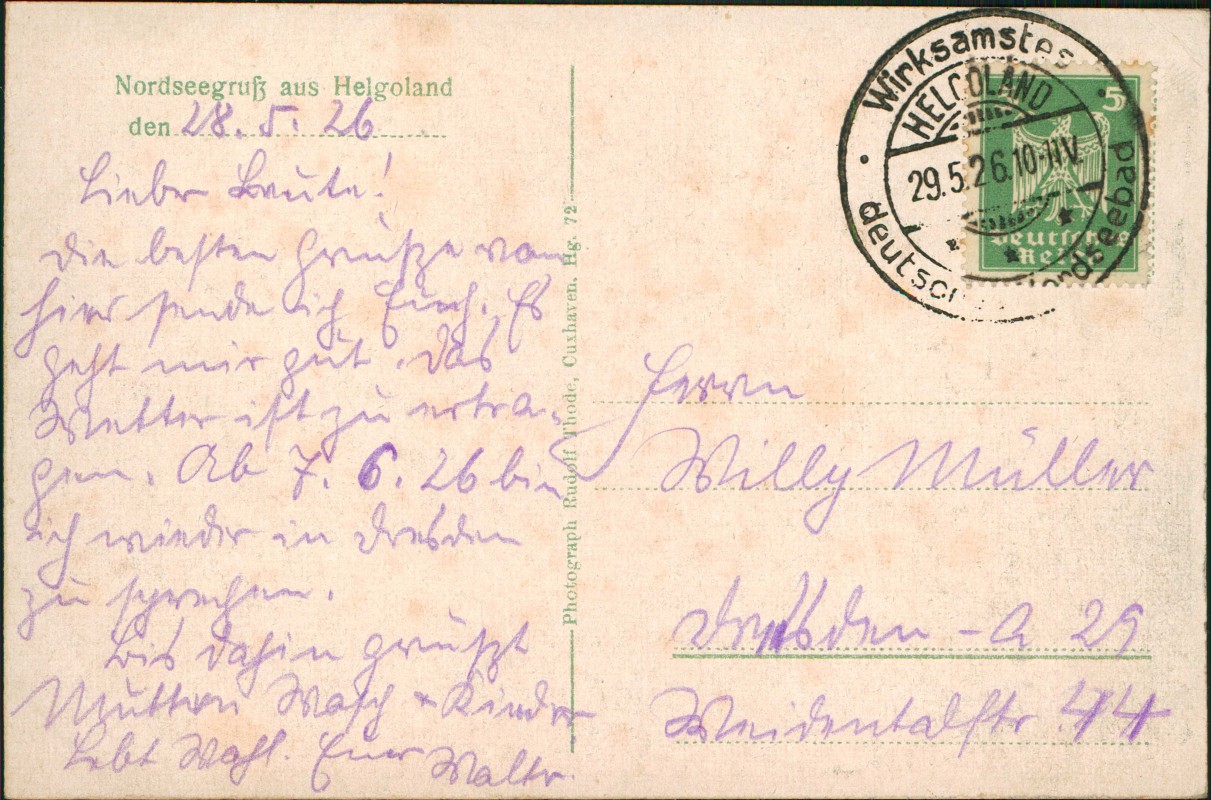 Nordseegruß aus Helgoland
den 28. 5. 26
Liebe Leute!
Die besten Grüsze von
hier sende ich Euch. Es
geht mir gut. Das
Wetter ist zu ertra-
gen. Ab 7. 6. 26 bin
ich wieder in Dresden
zu sprechen.
Bis dahin grüszt
Mutter + Kinder
Lebt Wohl. Euer Walter.
Photograph Rudolf Thode, Cuxhaven. Hg. 72
Wirksamstes
deutsches Nordseebad
HELGOLAND
29.5.26.10-11V
5
Deutsches
Reich
Herrn
Willy Müller
Dresden - A 29
Weidentalstr. 44